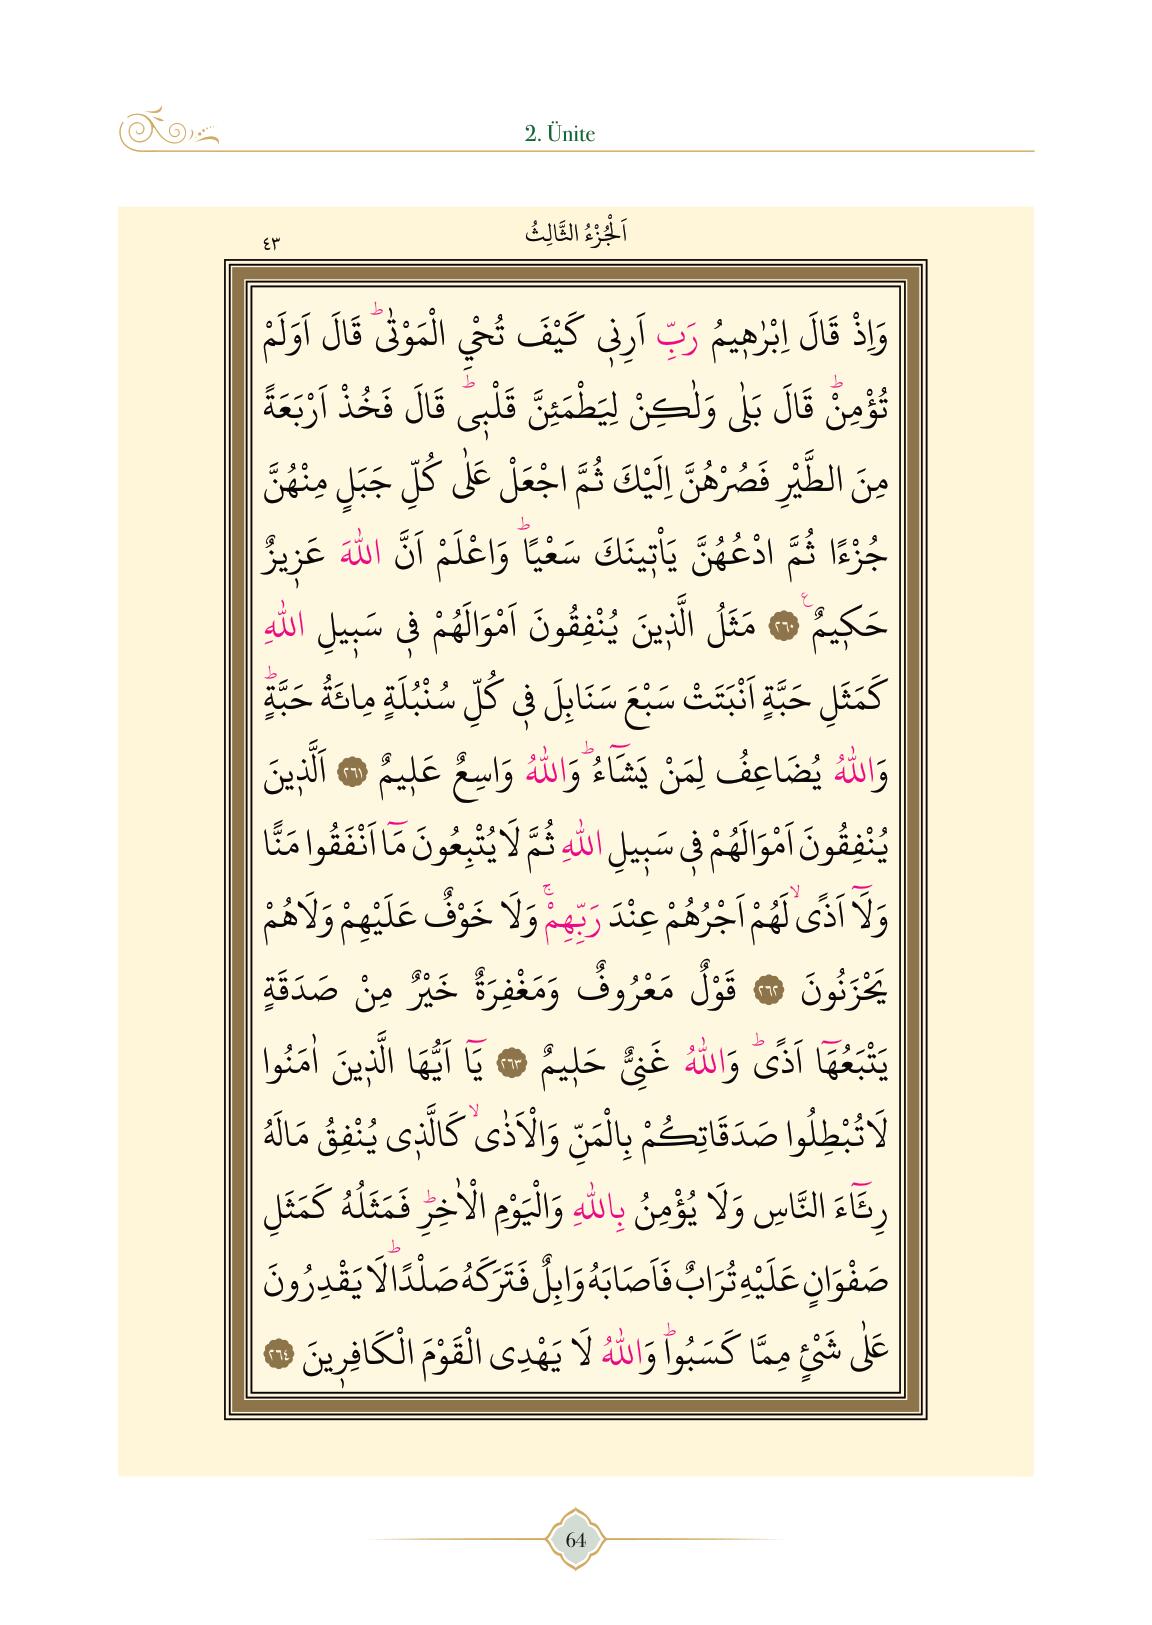 2. Ünite
اَلْجُزْءُ الثَّالِثُ
٤٣
وَاِذْ قَالَ اِبْرٰهٖيمُ رَبِّ اَرِنٖي كَيْفَ تُحْيِ الْمَوْتٰىؕ قَالَ اَوَلَمْ
تُؤْمِنْؕ قَالَ بَلٰى وَلٰكِنْ لِيَطْمَئِنَّ قَلْبٖىؕ قَالَ فَخُذْ اَرْبَعَةً
مِنَ الطَّيْرِ فَصُرْهُنَّ اِلَيْكَ ثُمَّ اجْعَلْ عَلٰى كُلِّ جَبَلٍ مِنْهُنَّ
جُزْءًا ثُمَّ ادْعُهُنَّ يَاْتٖينَكَ سَعْيًاؕ وَاعْلَمْ اَنَّ اللّٰهَ عَزٖيزٌ
حَكٖيمٌࣖ ﴿٢٦٠﴾ مَثَلُ الَّذٖينَ يُنْفِقُونَ اَمْوَالَهُمْ فٖى سَبٖيلِ اللّٰهِ
كَمَثَلِ حَبَّةٍ اَنْبَتَتْ سَبْعَ سَنَابِلَ فٖى كُلِّ سُنْبُلَةٍ مِائَةُ حَبَّةٍؕ
وَاللّٰهُ يُضَاعِفُ لِمَنْ يَشَٓاءُؕ وَاللّٰهُ وَاسِعٌ عَلٖيمٌ ﴿٢٦١﴾ اَلَّذٖينَ
يُنْفِقُونَ اَمْوَالَهُمْ فٖى سَبٖيلِ اللّٰهِ ثُمَّ لَا يُتْبِعُونَ مَٓا اَنْفَقُوا مَنًّا
وَلَٓا اَذًىۙ لَهُمْ اَجْرُهُمْ عِنْدَ رَبِّهِمْۚ وَلَا خَوْفٌ عَلَيْهِمْ وَلَاهُمْ
يَحْزَنُونَ ﴿٢٦٢﴾ قَوْلٌ مَعْرُوفٌ وَمَغْفِرَةٌ خَيْرٌ مِنْ صَدَقَةٍ
يَتْبَعُهَٓا اَذًىؕ وَاللّٰهُ غَنِىٌّ حَلٖيمٌ ﴿٢٦٣﴾ يَٓا اَيُّهَا الَّذٖينَ اٰمَنُوا
لَا تُبْطِلُوا صَدَقَاتِكُمْ بِالْمَنِّ وَالْاَذٰىۙ كَالَّذٖى يُنْفِقُ مَالَهُ
رِئَٓاءَ النَّاسِ وَلَا يُؤْمِنُ بِاللّٰهِ وَالْيَوْمِ الْاٰخِرِؕ فَمَثَلُهُ كَمَثَلِ
صَفْوَانٍ عَلَيْهِ تُرَابٌ فَاَصَابَهُ وَابِلٌ فَتَرَكَهُ صَلْدًاؕ لَا يَقْدِرُونَ
عَلٰى شَیْءٍ مِمَّا كَسَبُواؕ وَاللّٰهُ لَا يَهْدِى الْقَوْمَ الْكَافِرٖينَ ﴿٢٦٤﴾
64